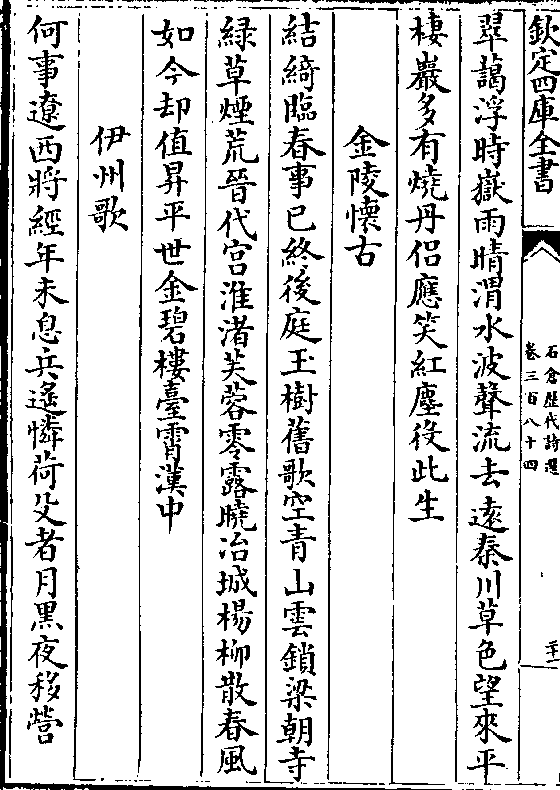 欽定四庫全書
石倉歷代詩選
卷三百八十四
翠藹浮時嶽雨晴渭水波聲流去遠秦川草色望來平
棲巖多有燒丹侶應笑紅塵役此生
金陵懷古
結綺臨春事已終後庭玉樹舊歌空青山雲鎖梁朝寺
緑草煙荒晉代宫淮渚芙蓉零露曉冶城楊柳散春風
如今却值昇平世金碧樓臺霄漢中
伊州歌
何事遼西將經年未息兵遙憐荷殳者月黑夜移營